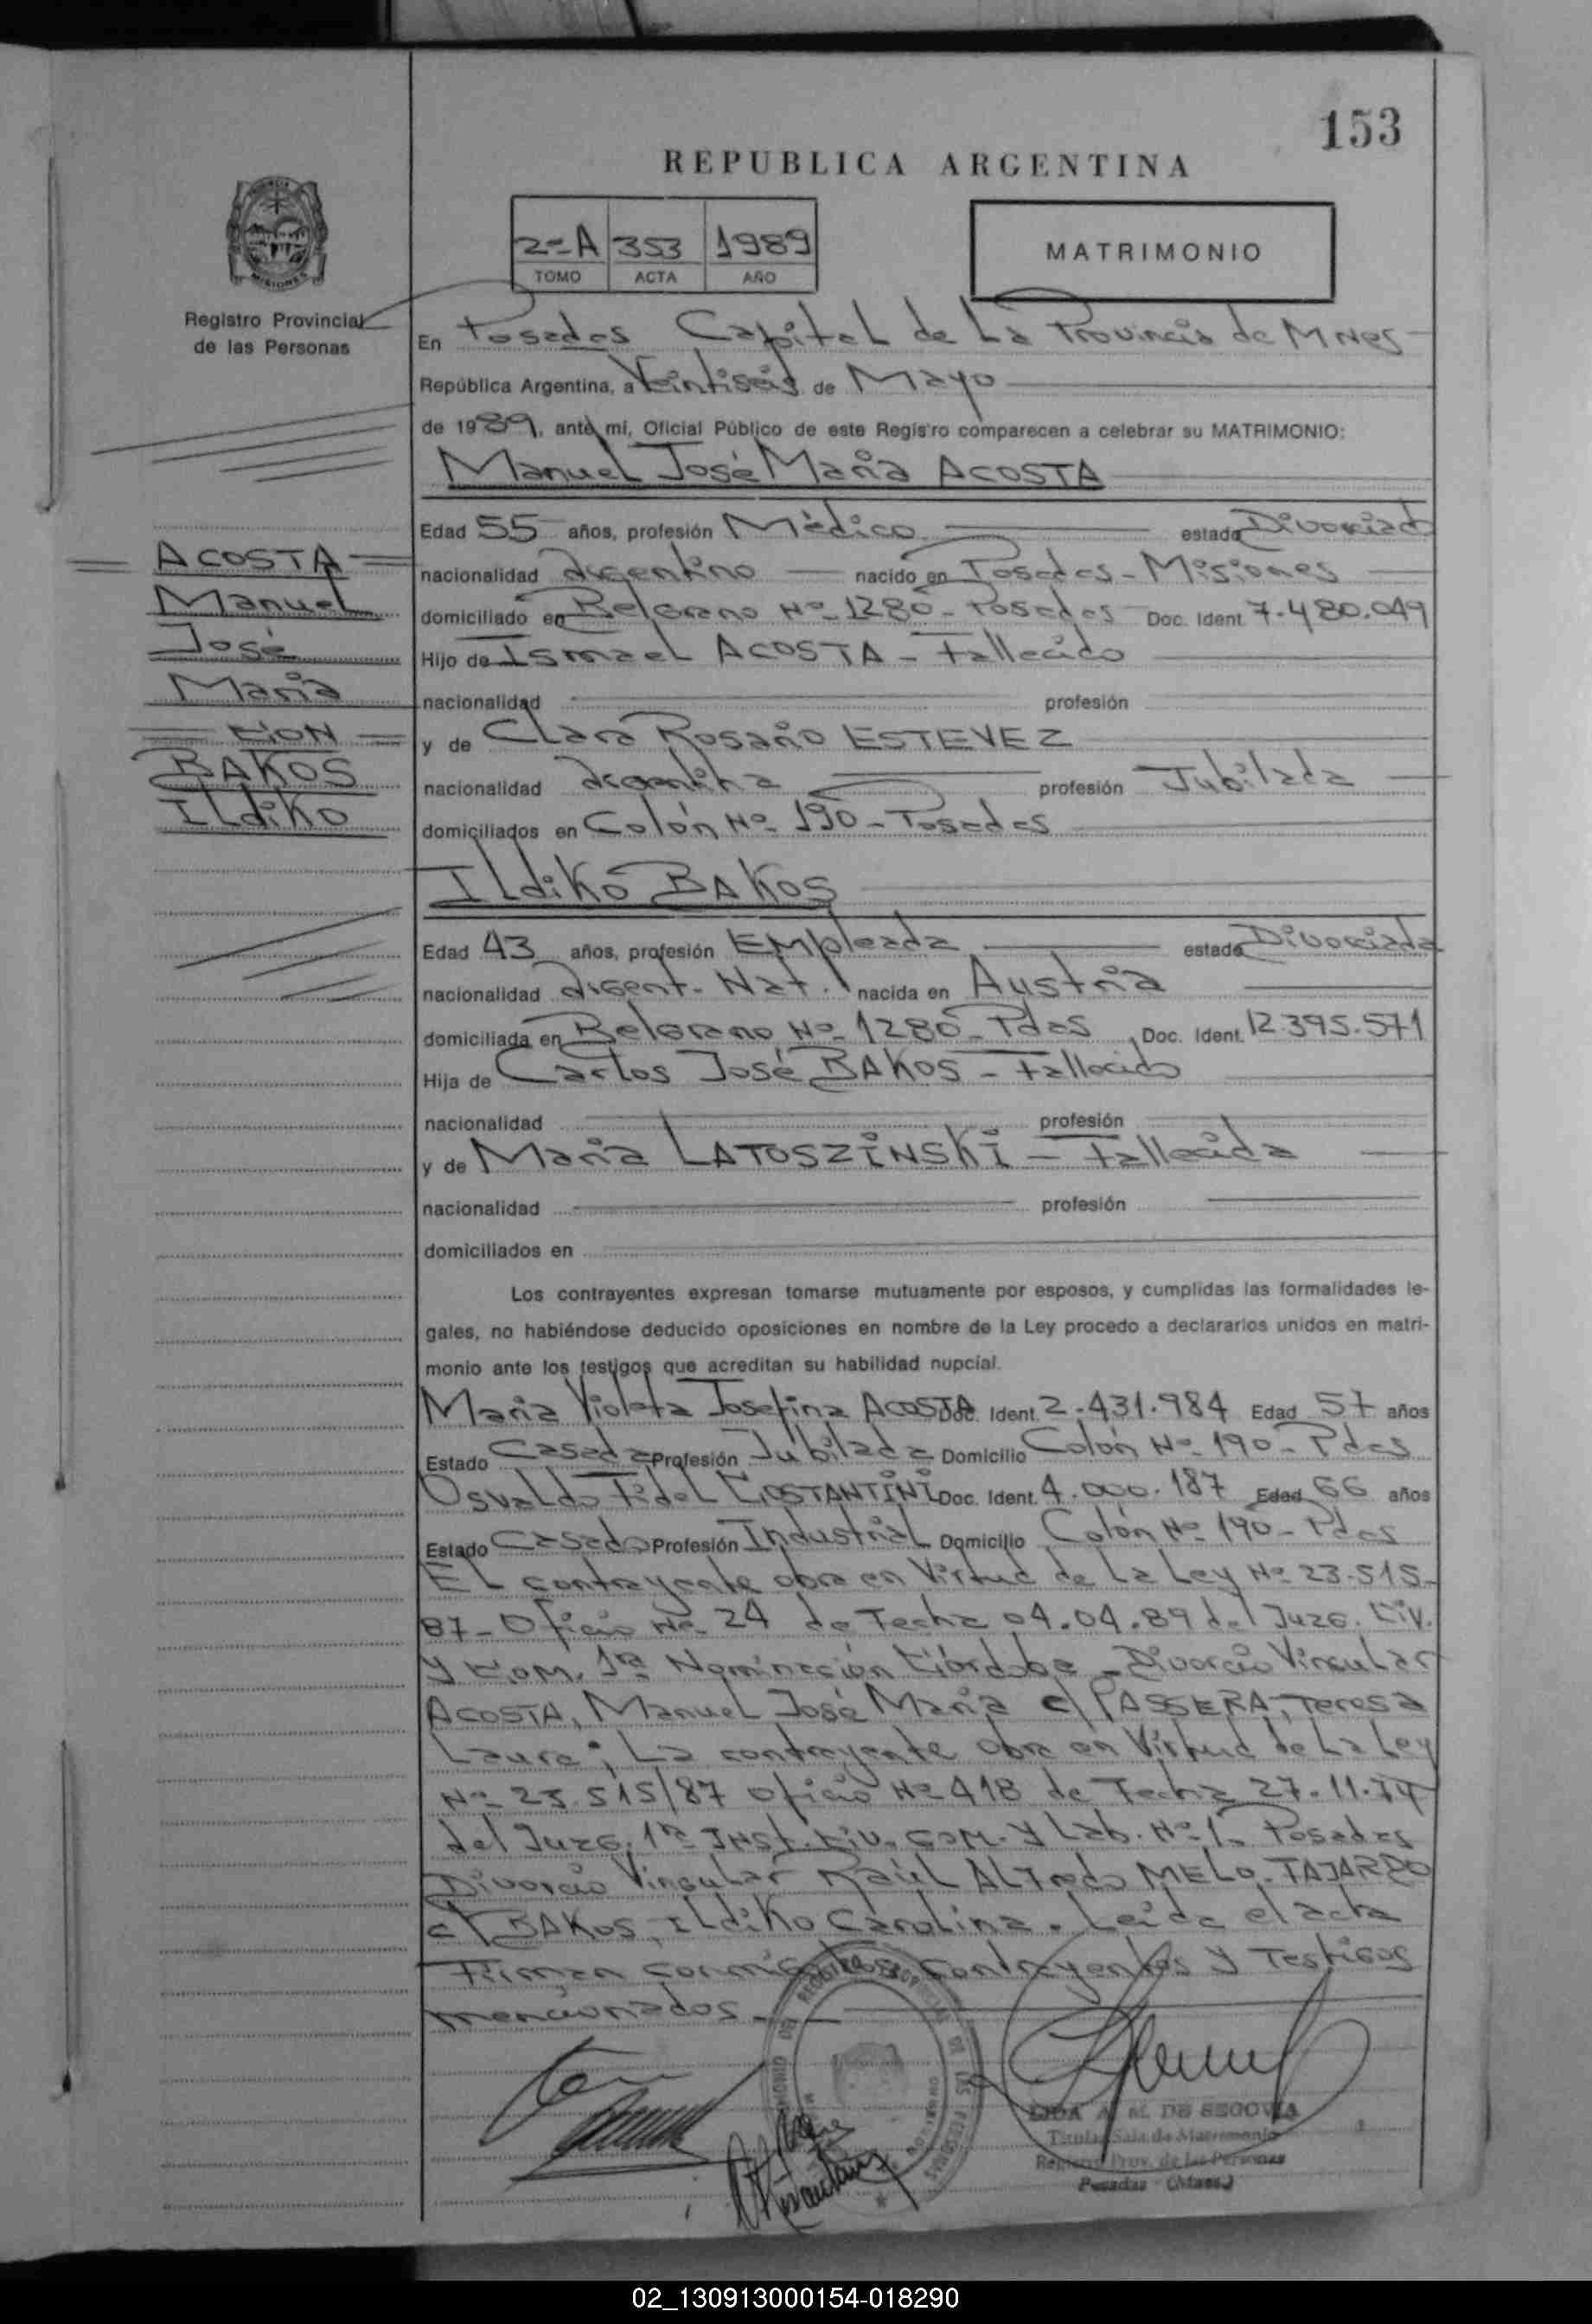 153
REPUBLICA ARGENTINA
2=A 353 1989
TOMO ACTA AÑO
MATRIMONIO
MISIONES
Registro Provincial
de las Personas
En Posadas Capital de La Provincia de Mnes
República Argentina, a Veintiseis de Mayo
de 1989, ante mí, Oficial Público de este Registro comparecen a celebrar su MATRIMONIO:
Manuel José María ACOSTA
Edad 55 años, profesión Médico estado Divorciado
nacionalidad Argentino nacido en Posadas - Misiones
domiciliado en Belgrano Nº 1280 - Posadas Doc. Ident. 7.480.049
Hijo de Ismael ACOSTA - Fallecido
nacionalidad profesión
y de Clara Rosario ESTEVEZ
nacionalidad Argentina profesión Jubilada
domiciliados en Colón Nº 190 - Posadas
ACOSTA
Manuel
José
María
CON
BAKOS
ILdiKo
ILdiKó BAKOS
Edad 43 años, profesión Empleada estado Divorciada
nacionalidad Argent. Nat. nacida en Austria
domiciliada en Belgrano Nº 1280 - Pdas Doc. Ident. 12.395.571
Hija de Carlos José BAKOS - Fallecido
nacionalidad profesión
y de María LATOSZiNSKi - Fallecida
nacionalidad profesión
domiciliados en
Los contrayentes expresan tomarse mutuamente por esposos, y cumplidas las formalidades le-
gales, no habiéndose deducido oposiciones en nombre de la Ley procedo a declararlos unidos en matri-
monio ante los testigos que acreditan su habilidad nupcial.
María Violeta Josefina ACOSTA Doc. Ident. 2.431.984 Edad 57 años
Estado Casada Profesión Jubilada Domicilio Colón Nº 190 - Pdas
Osvaldo Fidel COSTANTINI Doc. Ident. 4.000.187 Edad 66 años
Estado Casado Profesión Industrial Domicilio Colón Nº 190 - Pdas
El contrayente obra en Virtud de La Ley Nº 23.515-
87 - Oficio Nº 24 de Fecha 04.04.89 del Juzg. Civ.
y Com. 1ra Nominación Córdoba - Divorcio Vincular
ACOSTA, Manuel José María c/ PASSERA, Teresa
Laura; La contrayente obra en Virtud de La Ley
Nº 23.515/87 Oficio Nº 418 de Fecha 27.11.
del Juzg. 1ra Inst. Civ. Com. y Lab. Nº 1 - Posadas
Divorcio Vincular Raúl ALFredo MELO - FAJARDO
c/ BAKOS, ILdiKo Carolina. Leida el acta
Firman conmigo los contrayentes y Testigos
mencionados.-
LIDA A. M. DE SEGOVIA
Titular Sala de Matrimonio
Registro Prov. de las Personas
Posadas (Mnes.)
02_130913000154-018290